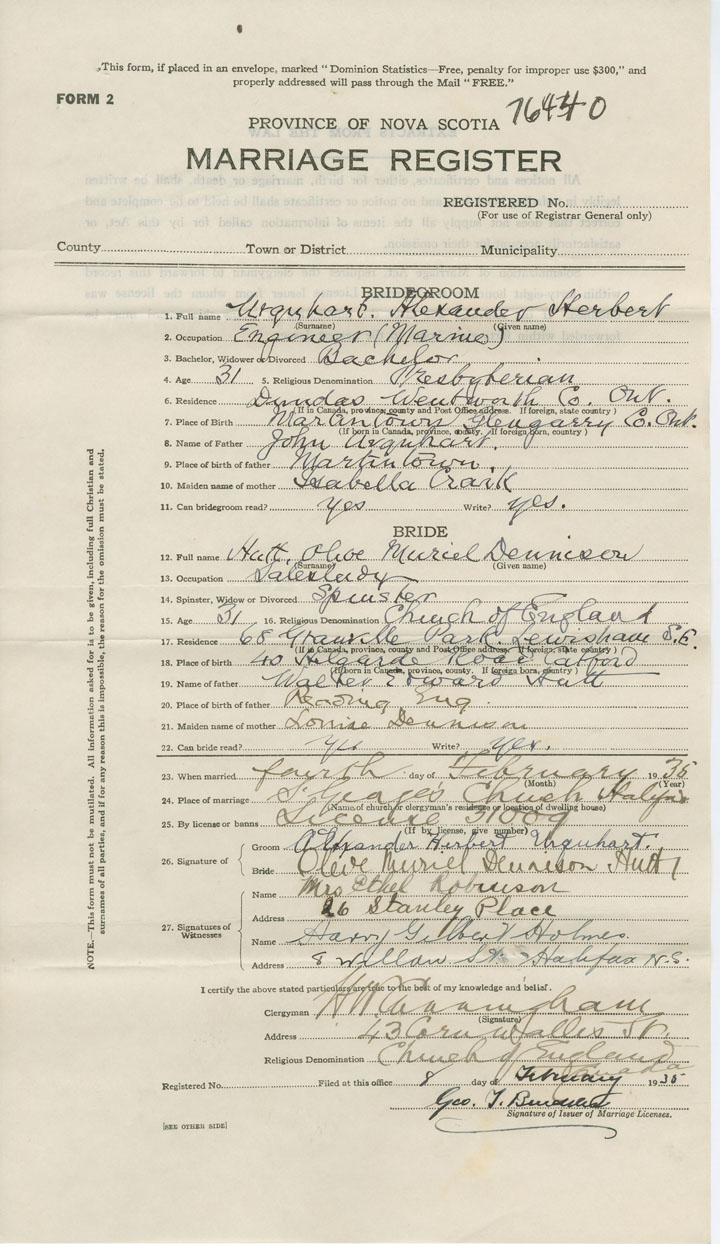 This form, if placed in an envelope, marked "Dominion Statistics—Free, penalty for improper use $300," and
properly addressed will pass through the Mail "FREE."
FORM 2
76440
PROVINCE OF NOVA SCOTIA
MARRIAGE REGISTER
REGISTERED No.
(For use of Registrar General only)
County Town or District Municipality
BRIDEGROOM
1. Full name Urquhart. Alexander Herbert
(Surname) (Given name)
2. Occupation Engineer (Marine)
3. Bachelor, Widower or Divorced Bachelor
4. Age 31 5. Religious Denomination Presbyterian
6. Residence Dundas Wentworth Co. Ont.
(If in Canada, province, county and Post Office address. If foreign, state country)
7. Place of Birth Martintown Glengarry Co. Ont.
(If born in Canada, province, county. If foreign born, country)
8. Name of Father John Urquhart.
9. Place of birth of father Martintown.
10. Maiden name of mother Isabella
11. Can bridegroom read? yes Write? yes.
BRIDE
12. Full name Hutt, Olive Muriel Dennison
(Surname) (Given name)
13. Occupation Saleslady
14. Spinster, Widow or Divorced Spinster
15. Age 31 16. Religious Denomination Church of England
17. Residence 68 Granville Park. Lewisham S.E.
(If in Canada, province, county and Post Office address. If foreign, state country)
18. Place of birth 40 Road Catford
(If born in Canada, province, county. If foreign born, country)
19. Name of father Walter Edward Hutt
20. Place of birth of father Reading Eng
21. Maiden name of mother Louise Dennison
22. Can bride read? Yes Write? yes.
23. When married fourth day of February 1935
(Month) (Year)
24. Place of marriage St George's Church Halifax
(Name of church or clergyman's residence or location of dwelling house)
25. By license or banns License 31009
(If by license, give number)
26. Signature of
Groom Alexander Herbert Urquhart.
Bride Olive Muriel Dennison Hutt
27. Signatures of Witnesses
Name Mrs Ethel Robinson
Address 26 Stanley Place
Name Harry Gilbert Holmes.
Address 8 Willow St. Halifax N.S.
I certify the above stated particulars are true to the best of my knowledge and belief.
Clergyman H W Cunningham
(Signature)
Address 43 Cornwallis St.
Religious Denomination Church of England
Canada
Registered No. Filed at this office 8 day of February 1935
Geo. T.
Signature of Issuer of Marriage Licenses.
[SEE OTHER SIDE]
NOTE.—This form must not be mutilated. All information asked for is to be given, including full Christian and
surnames of all parties, and if for any reason this is impossible, the reason for the omission must be stated.